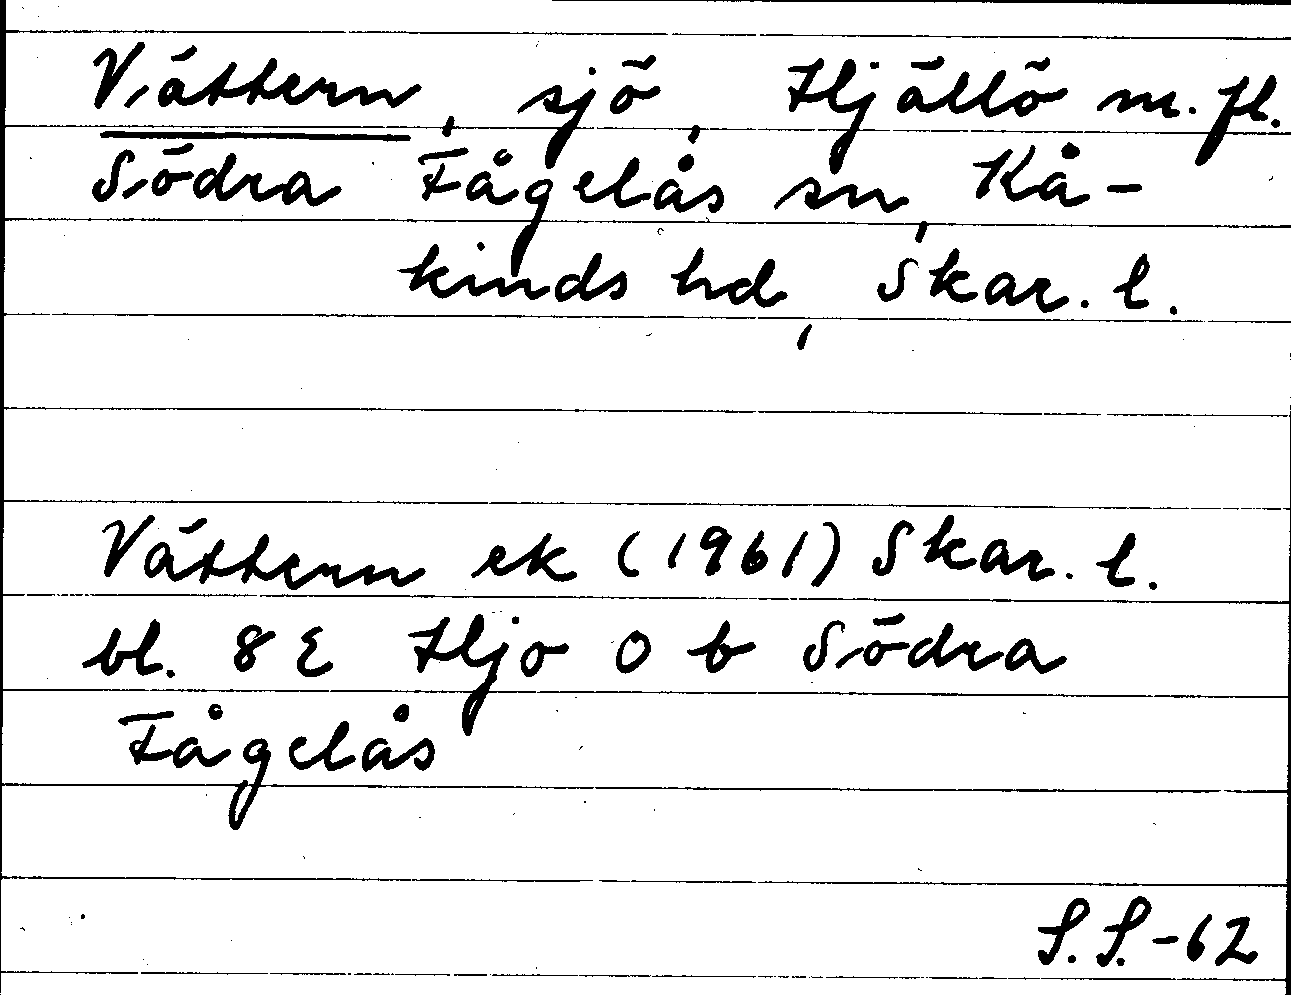 Vättern, sjö, Hjällö m. fl.
Södra Fågelås sn, Kå-
kinds hd, Skar. l.
Vättern ek (1961) Skar. l.
bl. 8 E Hjo 0 b Södra
Fågelås
S. S. -62